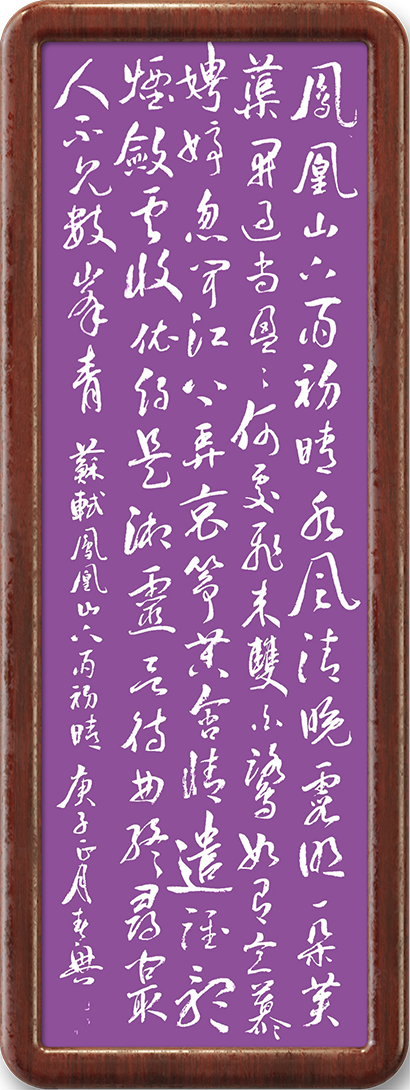 鳳凰山下雨初晴水風清晚霞明一朵芙
蕖開過尚盈盈何處飛來雙白鷺如有意慕
娉婷忽聞江上弄哀箏苦含情遣誰聽
煙斂雲收依約是湘靈欲待曲終尋問取
人不見數峯青 蘇軾鳳凰山下雨初晴 庚子正月